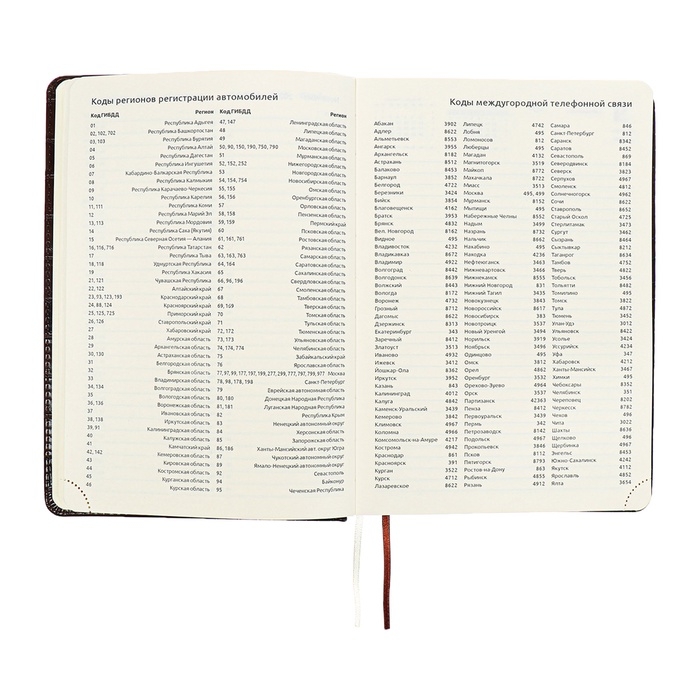 Коды регионов регистрации автомобилей
Код ГИБДД Регион Код ГИБДД Регион
01 Республика Адыгея 47, 147 Ленинградская область
02, 102, 702 Республика Башкортостан 48 Липецкая область
03, 103 Республика Бурятия 49 Магаданская область
04 Республика Алтай 50, 90, 150, 190, 750, 790 Московская область
05 Республика Дагестан 51 Мурманская область
06 Республика Ингушетия 52, 152, 252 Нижегородская область
07 Кабардино-Балкарская Республика 53 Новгородская область
08 Республика Калмыкия 54, 154, 754 Новосибирская область
09 Республика Карачаево-Черкесия 55, 155 Омская область
10 Республика Карелия 56, 156 Оренбургская область
11, 111 Республика Коми 57 Орловская область
12 Республика Марий Эл 58, 158 Пензенская область
13, 113 Республика Мордовия 59, 159 Пермский край
14 Республика Саха (Якутия) 60 Псковская область
15 Республика Северная Осетия — Алания 61, 161, 761 Ростовская область
16, 116, 716 Республика Татарстан 62 Рязанская область
17 Республика Тыва 63, 163, 763 Самарская область
18, 118 Удмуртская Республика 64, 164 Саратовская область
19 Республика Хакасия 65 Сахалинская область
21, 121 Чувашская Республика 66, 96, 196 Свердловская область
22, 122 Алтайский край 67 Смоленская область
23, 93, 123, 193 Краснодарский край 68 Тамбовская область
24, 88, 124 Красноярский край 69, 169 Тверская область
25, 125, 725 Приморский край 70 Томская область
26, 126 Ставропольский край 71 Тульская область
27 Хабаровский край 72, 172 Тюменская область
28 Амурская область 73, 173 Ульяновская область
29 Архангельская область 74, 174, 774 Челябинская область
30, 130 Астраханская область 75 Забайкальский край
31 Белгородская область 76 Ярославская область
32 Брянская область 77, 97, 99, 177, 197, 199, 277, 299, 777, 797, 799, 977 Москва
33 Владимирская область 78, 98, 178, 198 Санкт-Петербург
34, 134 Волгоградская область 79 Еврейская автономная область
35 Вологодская область 80, 180 Донецкая Народная Республика
36, 136 Воронежская область 81, 181 Луганская Народная Республика
37 Ивановская область 82 Республика Крым
38, 138 Иркутская область 83 Ненецкий автономный округ
39, 91 Калининградская область 84 Херсонская область
40 Калужская область 85 Запорожская область
41 Камчатский край 86, 186 Ханты-Мансийский авт. округ Югра
42, 142 Кемеровская область 87 Чукотский автономный округ
43 Кировская область 89 Ямало-Ненецкий автономный округ
44 Костромская область 92 Севастополь
45 Курганская область 94 Байконур
46 Курская область 95 Чеченская Республика
Коды междугородной телефонной связи
Абакан 3902 Липецк 4742 Самара 846
Адлер 8622 Лобня 495 Санкт-Петербург 812
Альметьевск 8553 Ломоносов 812 Саранск 8342
Ангарск 3955 Люберцы 495 Саратов 8452
Архангельск 8182 Магадан 4132 Севастополь 869
Астрахань 8512 Магнитогорск 3519 Северодвинск 8184
Балаково 8453 Майкоп 8772 Северск 3823
Барнаул 3852 Махачкала 8722 Серпухов 4967
Белгород 4722 Миасс 3513 Смоленск 4812
Березники 3424 Москва 495, 499 Солнечногорск 4962
Бийск 3854 Мурманск 8152 Сочи 8622
Благовещенск 4162 Мытищи 495 Ставрополь 8652
Братск 3953 Набережные Челны 8552 Старый Оскол 4725
Брянск 4832 Надым 3499 Стерлитамак 3473
Вел. Новгород 8162 Назрань 8732 Сургут 3462
Видное 495 Нальчик 8662 Сызрань 8464
Владивосток 4232 Нахабино 495 Сыктывкар 8212
Владикавказ 8672 Находка 4236 Таганрог 8634
Владимир 4922 Нефтеюганск 3463 Тамбов 4752
Волгоград 8442 Нижневартовск 3466 Тверь 4822
Волгодонск 8639 Нижнекамск 8555 Тобольск 3456
Волжский 8443 Нижний Новгород 831 Тольятти 8482
Вологда 8172 Нижний Тагил 3435 Томилино 495
Воронеж 4732 Новокузнецк 3843 Томск 3822
Грозный 8712 Новороссийск 8617 Тула 4872
Дагомыс 8622 Новосибирск 383 Тюмень 3452
Дзержинск 8313 Новотроицк 3537 Улан-Удэ 3012
Екатеринбург 343 Новый Уренгой 3494 Ульяновск 8422
Заречный 8412 Норильск 3919 Усолье 3424
Златоуст 3513 Ноябрьск 3496 Уссурийск 4234
Иваново 4932 Одинцово 495 Уфа 347
Ижевск 3412 Омск 3812 Хабаровск 4212
Йошкар-Ола 8362 Орел 4862 Ханты-Мансийск 3467
Иркутск 3952 Оренбург 3532 Химки 495
Казань 843 Орехово-Зуево 4964 Чебоксары 8352
Калининград 4012 Орск 3537 Челябинск 351
Калуга 4842 Партизанск 42363 Череповец 8202
Каменск-Уральский 3439 Пенза 8412 Черкесск 8782
Кемерово 3842 Первоуральск 3439 Чехов 496
Климовск 4967 Пермь 342 Чита 3022
Коломна 4966 Петрозаводск 8142 Шахты 8636
Комсомольск-на-Амуре 4217 Подольск 4967 Щелково 496
Кострома 4942 Прокопьевск 3846 Щербинка 4967
Краснодар 861 Псков 8112 Энгельс 8453
Красноярск 391 Пятигорск 8793 Южно-Сахалинск 4242
Курган 3522 Ростов-на-Дону 863 Якутск 4112
Курск 4712 Рыбинск 4855 Ярославль 4852
Лазаревское 8622 Рязань 4912 Ялта 3654